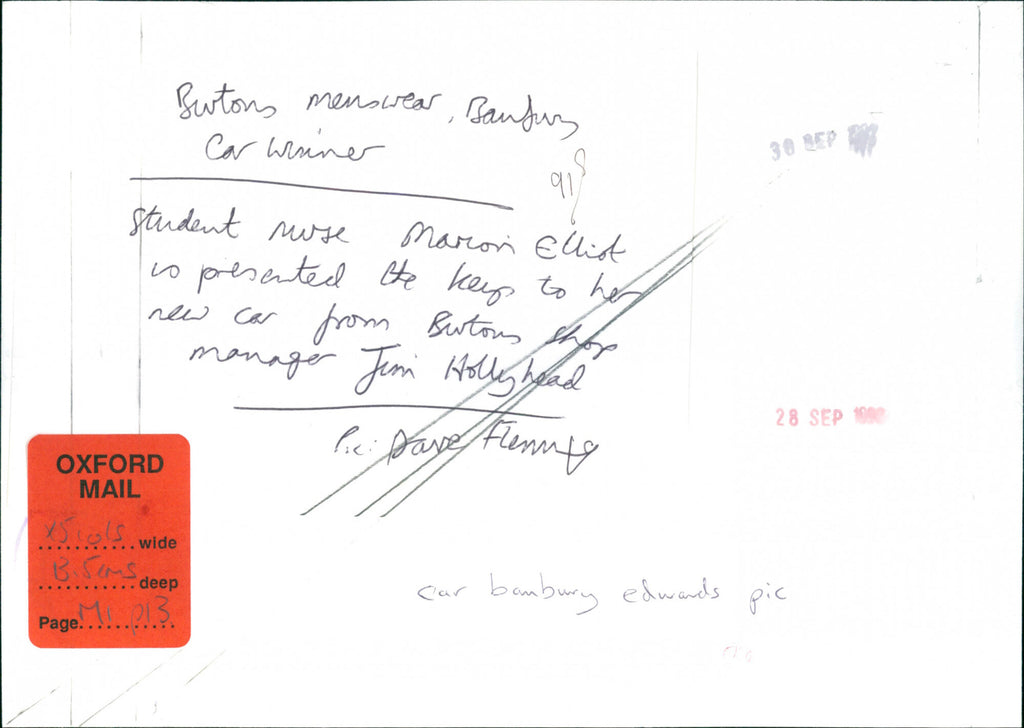 Burtons menswear, Banbury
Car Winner
918
30 SEP
Student nurse Marion Elliot
is presented the keys to her
new car from Burtons shop
manager Jim Hollyhead
28 SEP
Pic: Dave Fleming
OXFORD
MAIL
x5 cols wide
deep
Page M1 p13
car banbury edwards pic